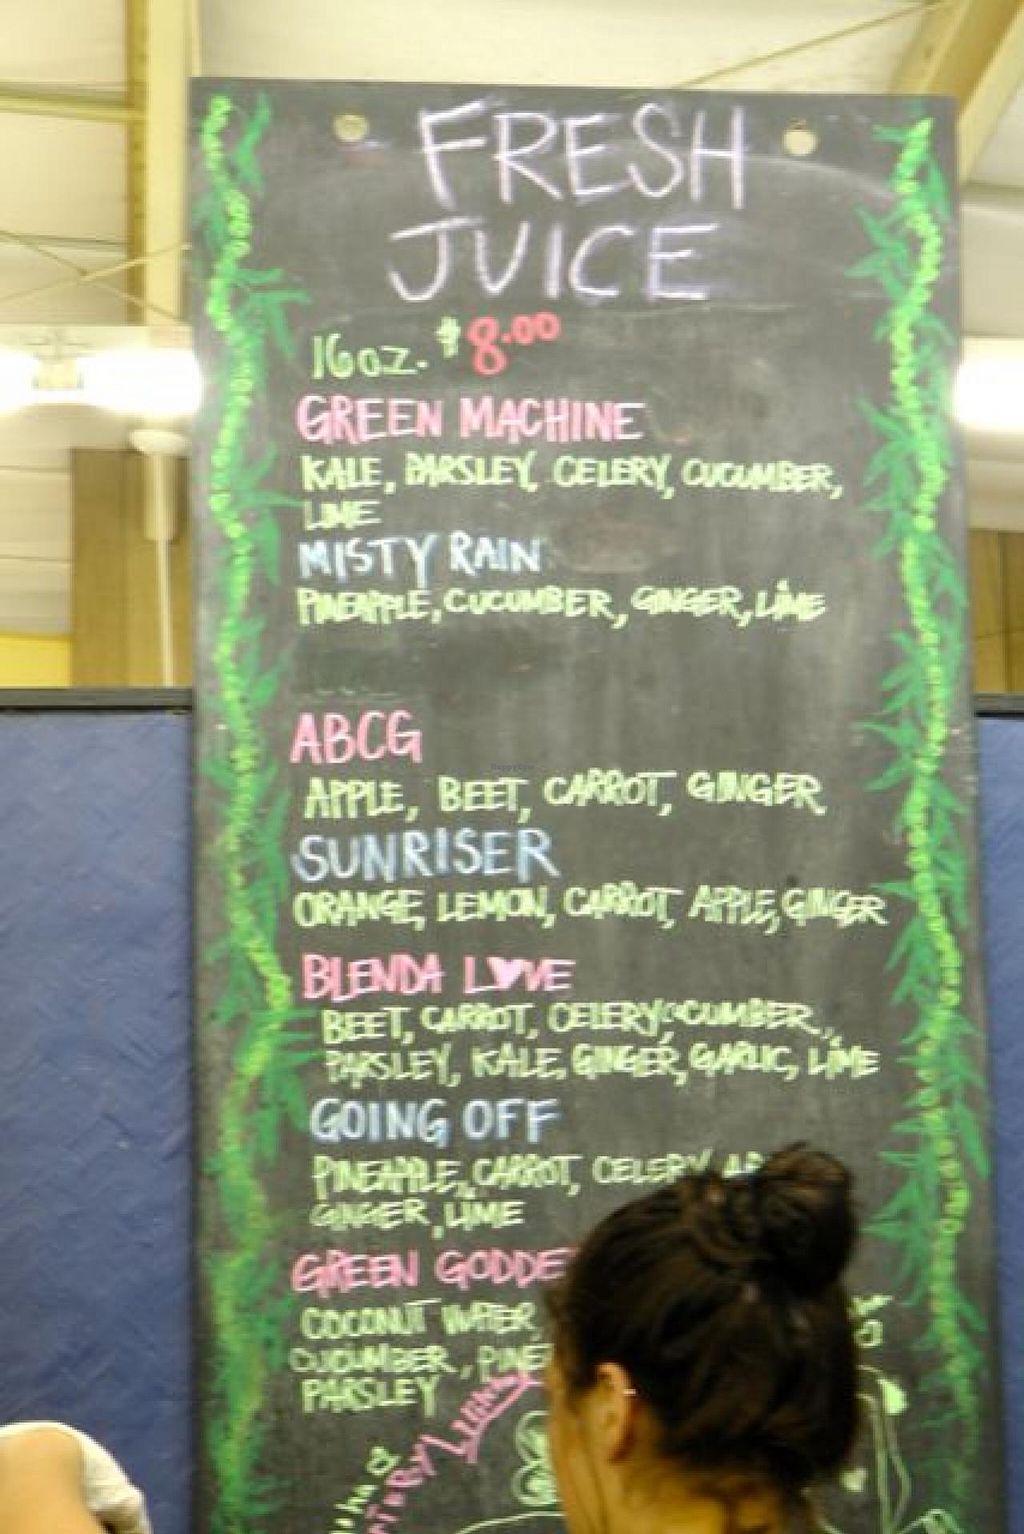 FRESH
JUICE
16 oz. $8.00
GREEN MACHINE
KALE, PARSLEY, CELERY, CUCUMBER,
LIME
MISTY RAIN
PINEAPPLE, CUCUMBER, GINGER, LIME
ABCG
APPLE, BEET, CARROT, GINGER
SUNRISER
ORANGE, LEMON, CARROT, APPLE, GINGER
BLENDA LOVE
BEET, CARROT, CELERY, CUCUMBER,
PARSLEY, KALE, GINGER, GARLIC, LIME
GOING OFF
PINEAPPLE, CARROT, CELERY,
GINGER, LIME
GREEN
COCONUT WATER,
CUCUMBER,
PARSLEY